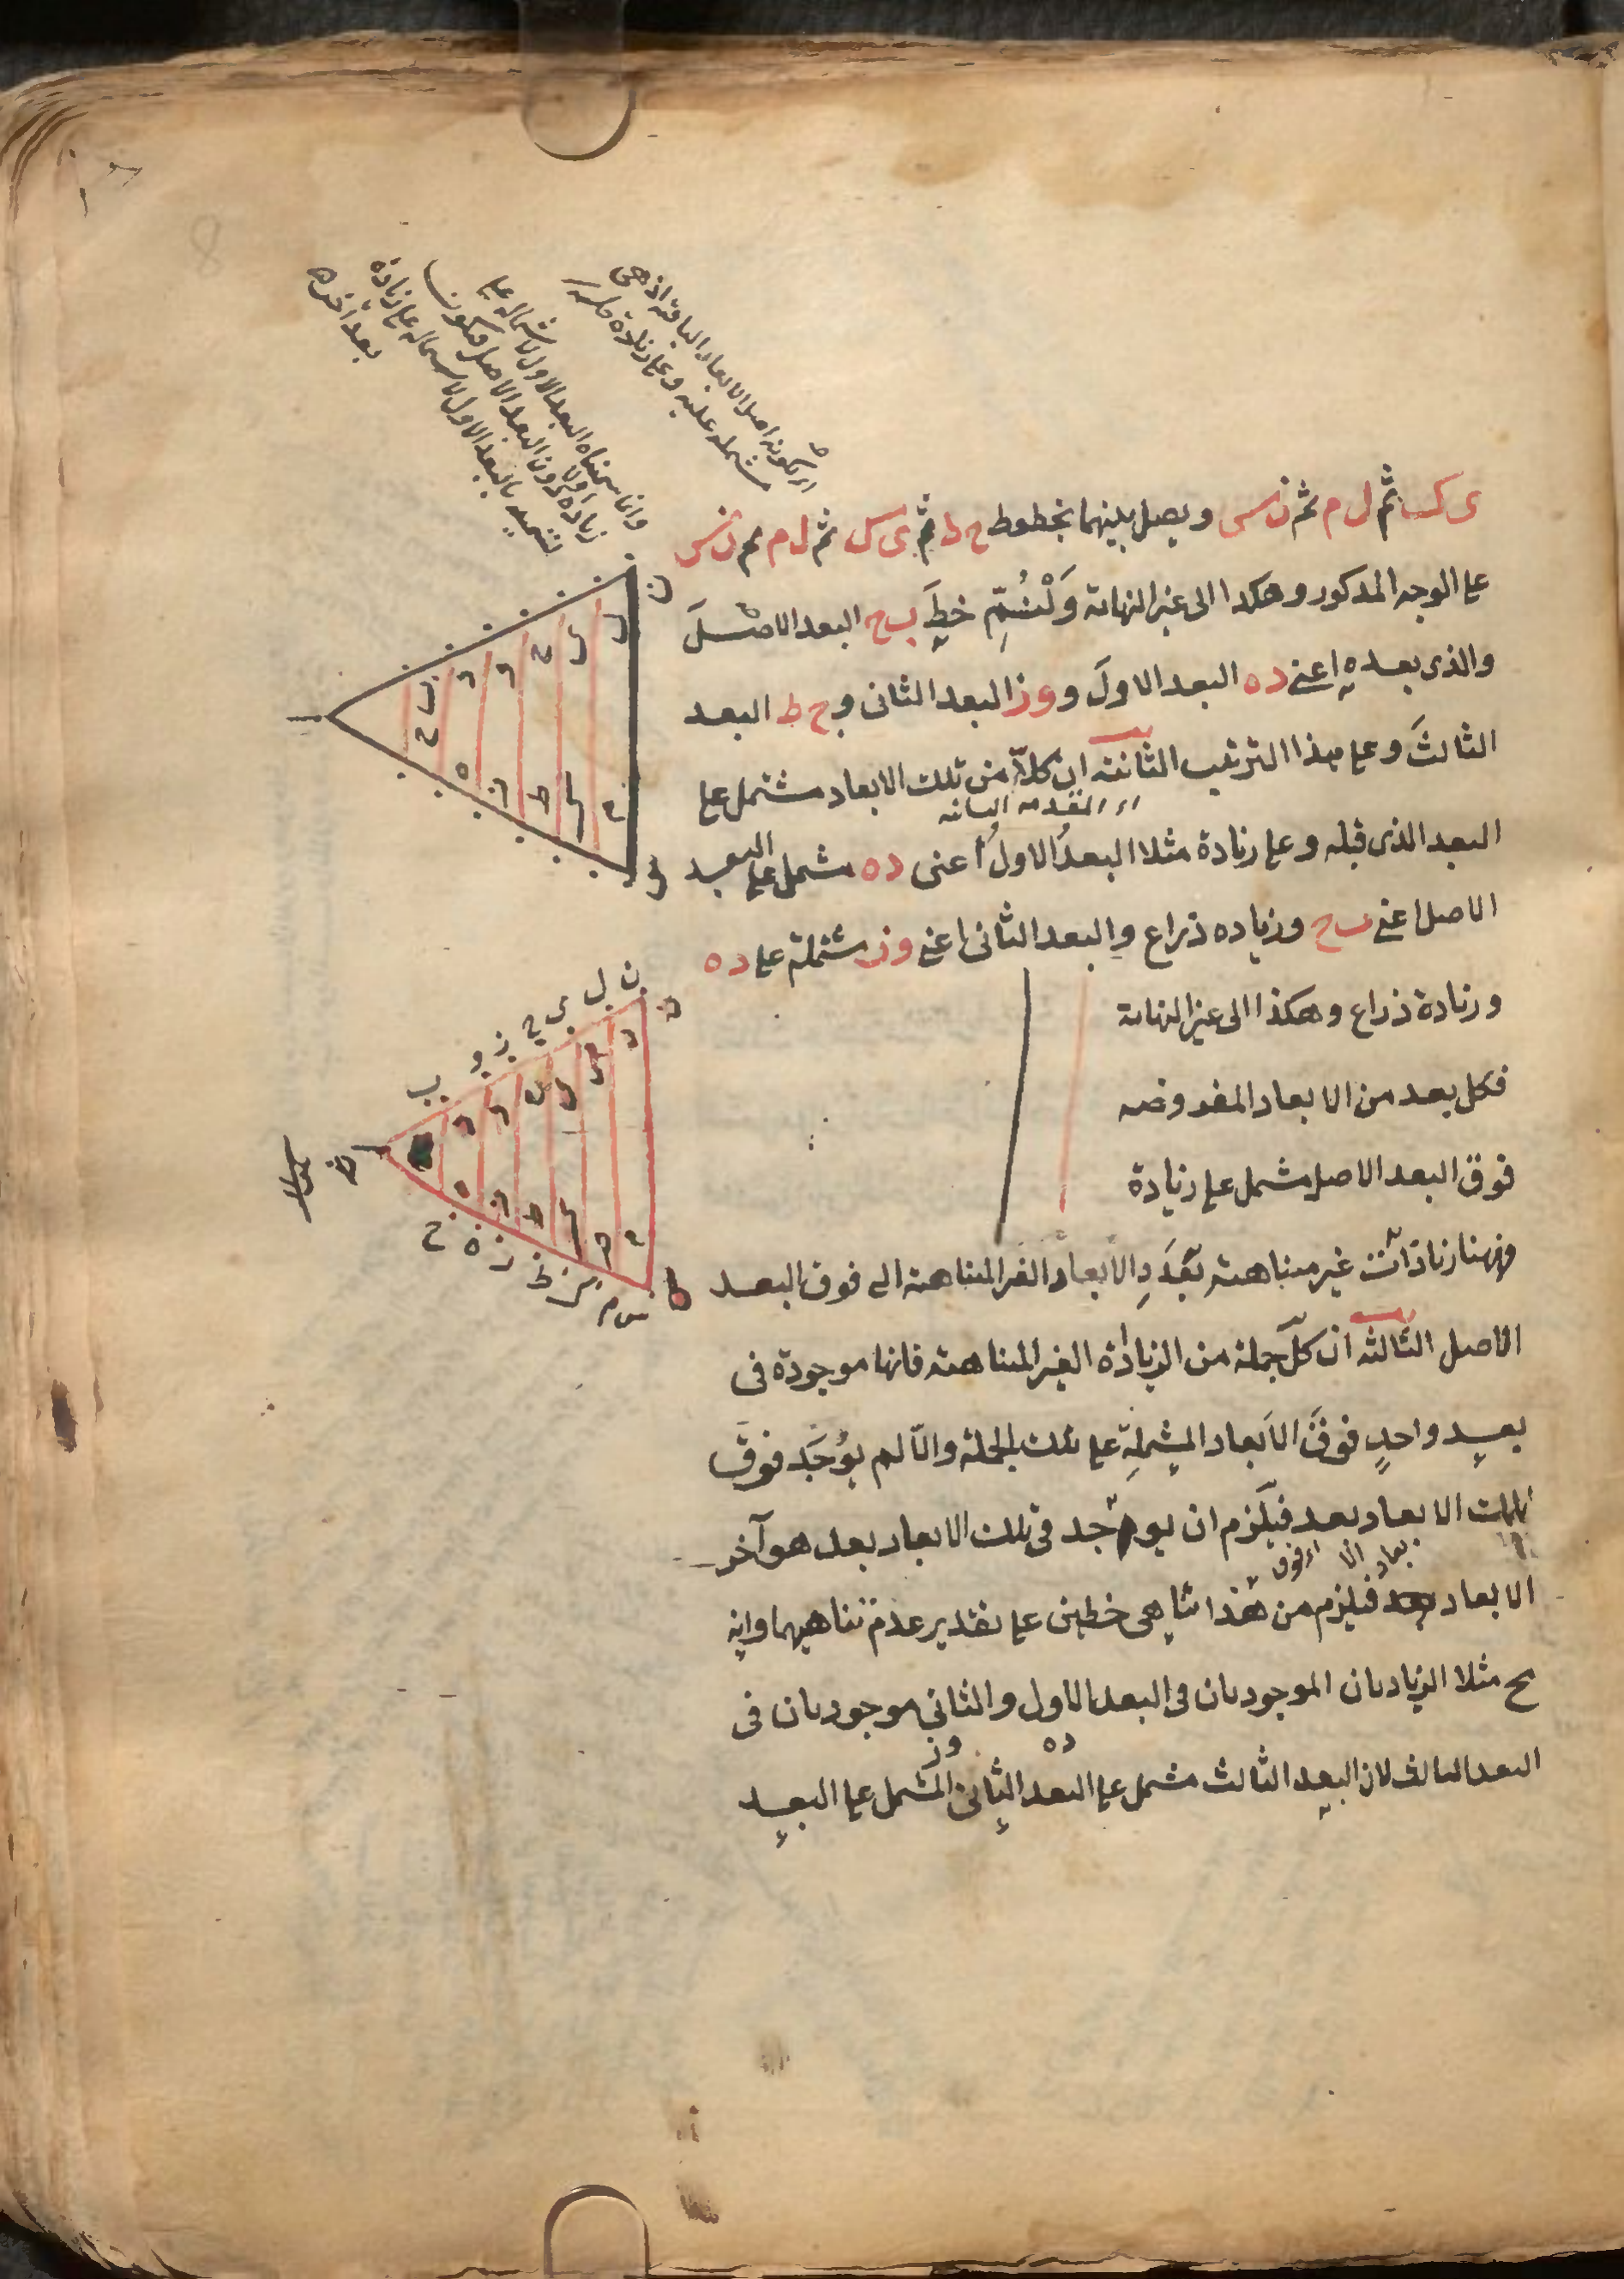 ى ك ثم ل م ثم ن س ويصل بينهما بخطوط ح ط ثم ى ك ثم ل م ثم ن س
على الوجه المذكور وهكذا الى غير النهاية وَلْنُسَمِّ خط ب ح البعد الاصل
والذى بعده اعنى د ه البعد الاول و و ز البعد الثانى و ح ط البعد
الثالث وعلى هذا الترتيب الثانية ان كلا من تلك الابعاد مشتمل على
اى المقدمة الثانية
البعد الذى قبله وعلى زيادة مثلا البعد الاول أعنى د ه مشتمل على البعد
الاصل اعنى ب ح وزياده ذراع والبعد الثانى اعنى و ز مشتملة على د ه
وزيادة ذراع وهكذا الى غير النهاية
فكل بعد من الابعاد المفروضه
فوق البعد الاصل مشتمل على زيادة
فههنا زيادات غير متناهية بعدد الابعاد الغير المتناهية الى فوق البعد
الاصل الثالثه ان كل جملة من الزيادة الغير المتناهية فانها موجودة فى
بعد واحد فوق الابعاد المشتملة على تلك الجملة والا لم يوجد فوق
تلك الابعاد بعد فيلزم ان يوجد فى تلك الابعاد بعد هو آخر
الابعاد فيلزم من هذا تناهى خطين على تقدير عدم تناهيهما وانه
مح مثلا الزيادتان الموجودتان فى البعد الاول والثانى موجودتان فى
د ه و ز
البعد الثالث لان البعد الثالث مشتمل على البعد الثانى المشتمل على البعد
وانا سميناه البعد الاول لاشتماله على
زيادة اولا دون البعد الاصل
بالبعد الاول لاشتماله على زيادة
اى كونه اصل الابعاد الباقية اذ هى
مشتملة عليه وعلى زيادة
8